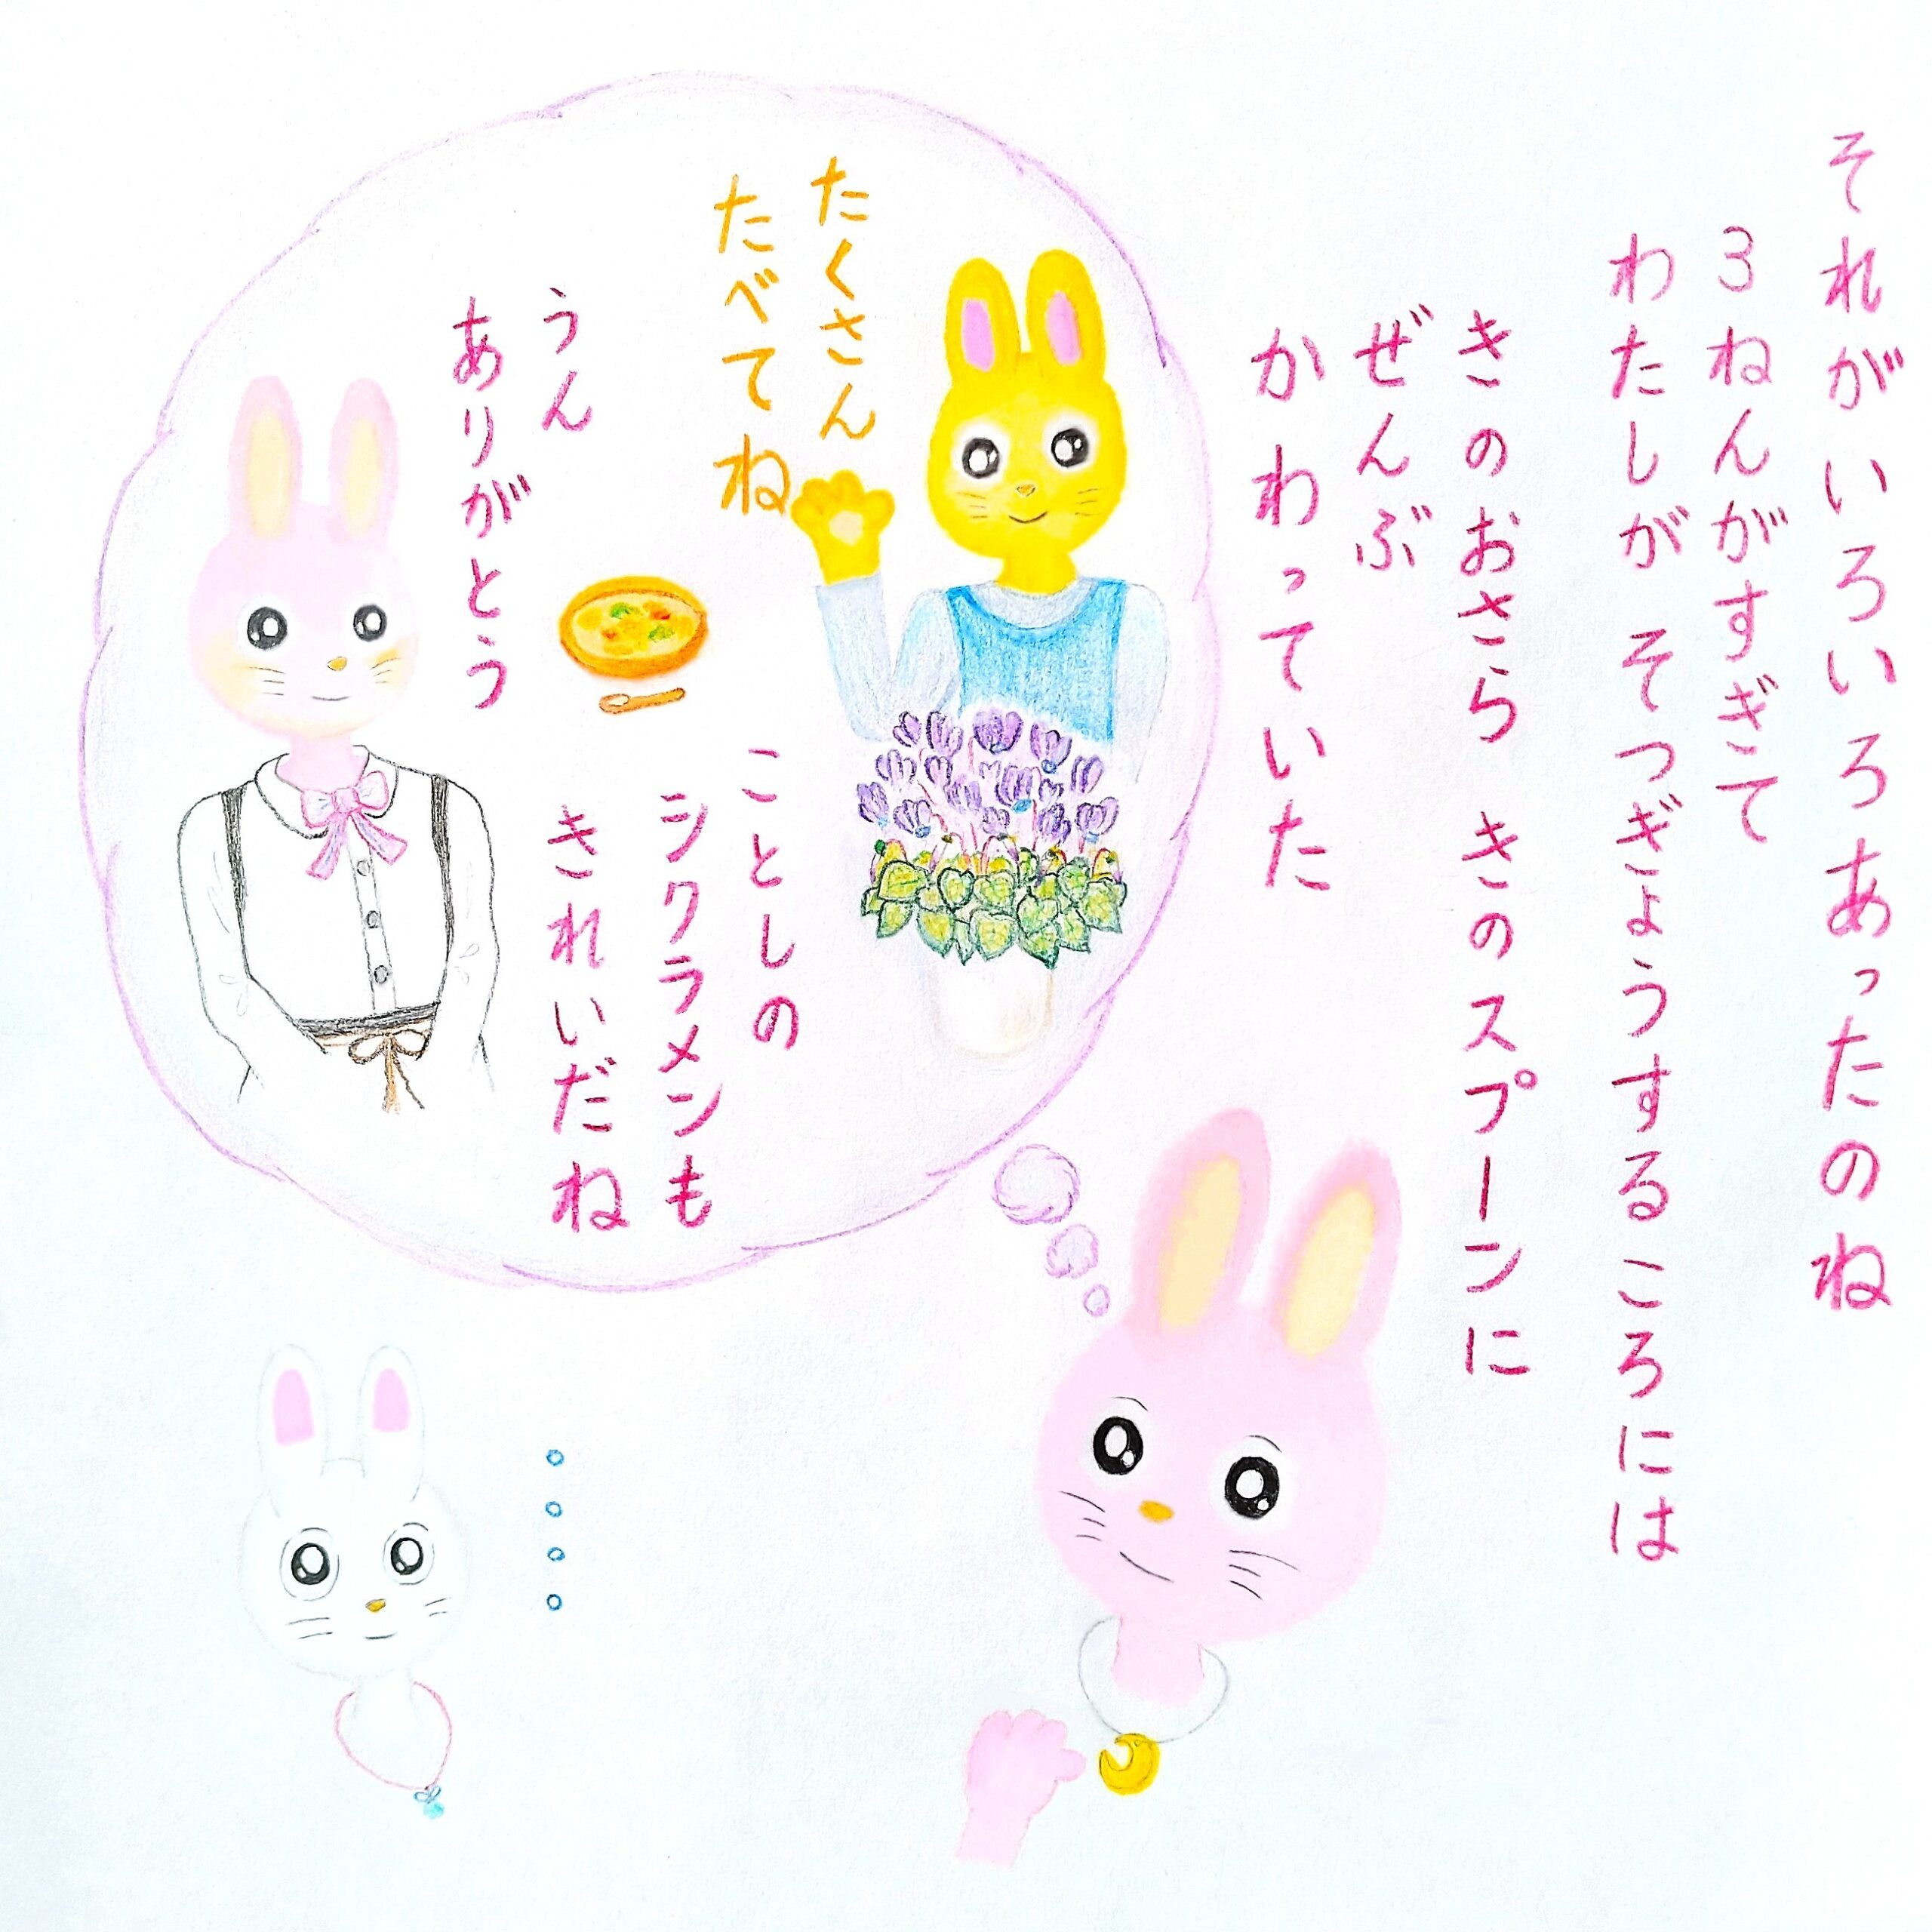 それがいろいろあったのね
3ねんがすぎて
わたしが そつぎょうするころには
きのおさら きのスプーンに
ぜんぶ
かわっていた
たくさん
たべてね
うん
ありがとう
ことしの
シクラメンも
きれいだね